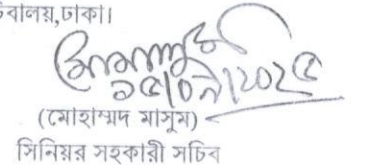 বালয়,ঢাকা।
(মোহাম্মদ মাসুম)
সিনিয়র সহকারী সচিব